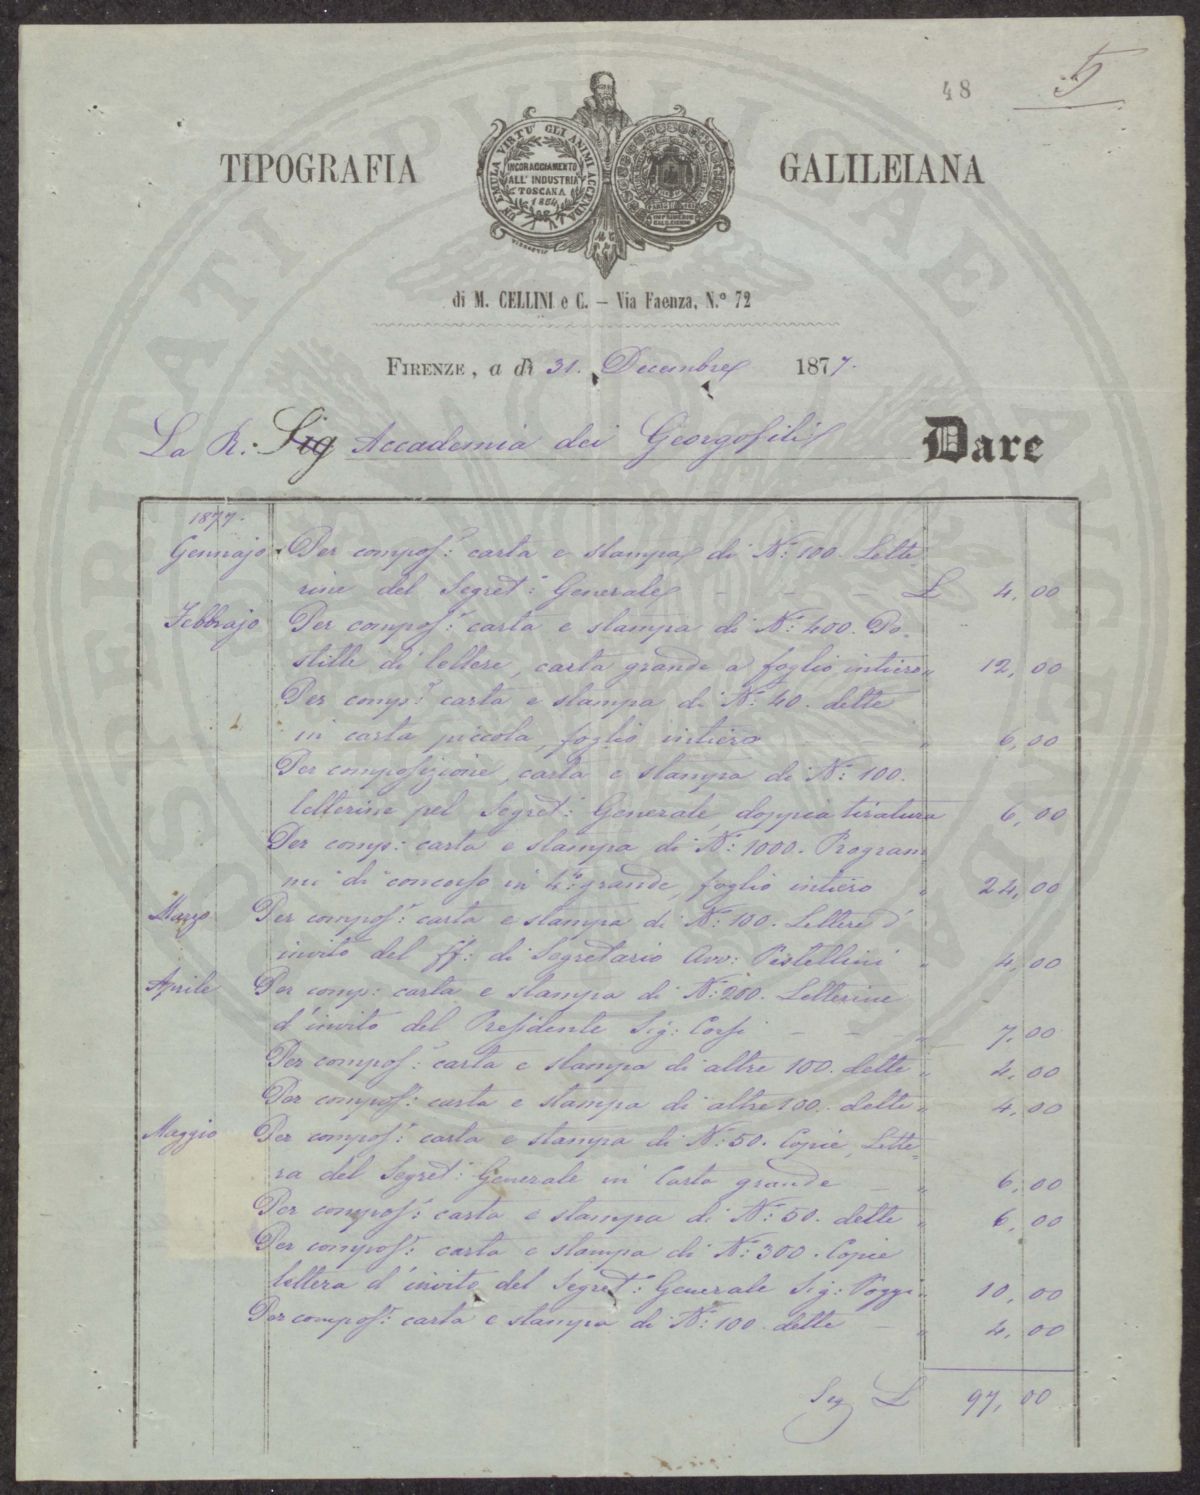 48
5
TIPOGRAFIA GALILEIANA
UN EMULA VIRTU' GLI ANIMI ACCENDA
INCORAGGIAMENTO
ALL' INDUSTRIA
TOSCANA
1854
di M. CELLINI e C. – Via Faenza, N.º 72
FIRENZE, a dì 31. Decembre 1877.
La R: Sig Accademia dei Georgofili Dare
1877.
Gennajo Per compos:e carta e stampa di N:o 100. Lette=
rine del Segret:o Generale – – – L 4,00
Febbrajo Per compos:e carta e stampa di N:o 400. Po=
stille di lettere, carta grande a foglio intiero " 12,00
Per comp:e carta e stampa di N:o 40. dette
in carta piccola, foglio intiero " 6,00
Per composizione, carta e stampa di N:o 100.
letterine pel Segret:o Generale, doppia tiratura 6,00
Per comp: carta e stampa di N:o 1000. Program
mi di concorso in 4:o grande, foglio intiero " 24,00
Marzo Per compos:e carta e stampa di N:o 100. Lettere d'
invito del ff: di Segretario Avv: Pestellini " 4,00
Aprile Per comp: carta e stampa di N:o 200. Letterine
d'invito del Presidente Sig: Corsi – – – " 7,00
Per compos:e carta e stampa di altre 100. dette " 4,00
Per compos:e carta e stampa di altre 100. dette " 4,00
Maggio Per compos:e carta e stampa di N:o 50. Copie, Lette=
ra del Segret:o Generale in Carta grande – " 6,00
Per compos:e carta e stampa di N:o 50. dette " 6,00
Per compos:e carta e stampa di N:o 300. Copie
lettera d'invito del Segret:o Generale Sig: Poggi " 10,00
Per compos:e carta e stampa di N:o 100 dette – " 4,00
Seg L 97,00